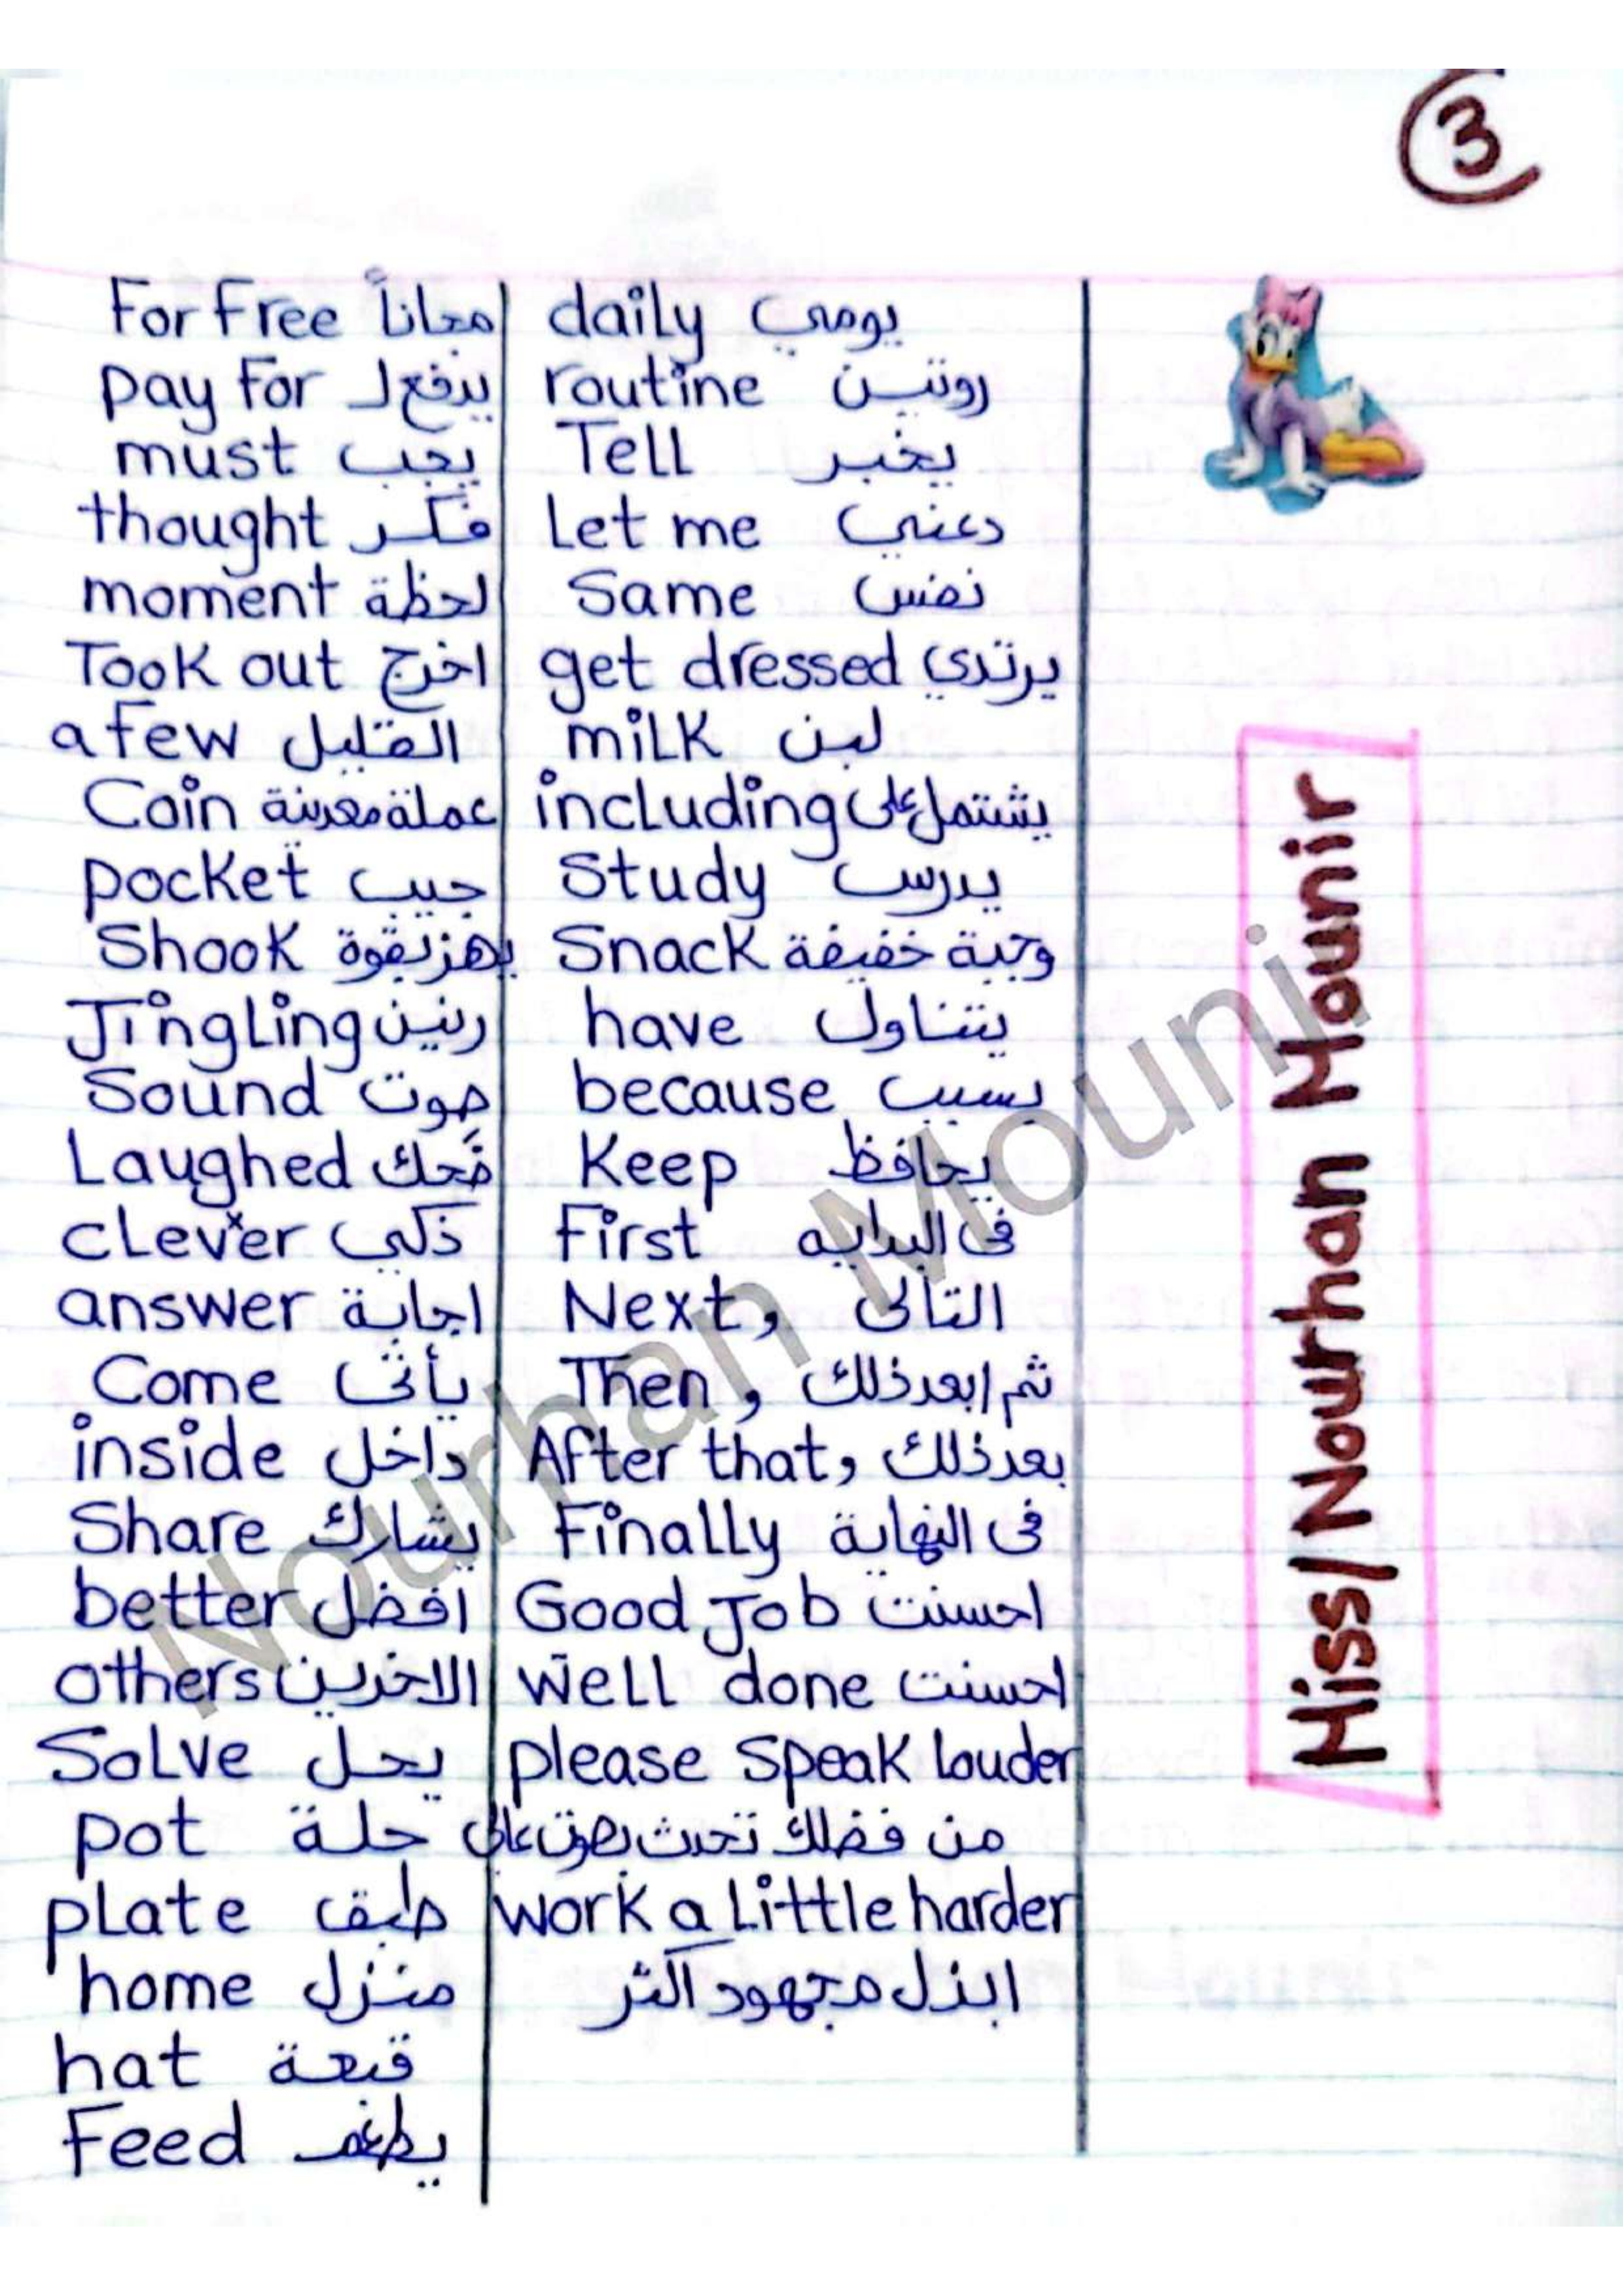 3
For Free مجاناً
pay For يدفع ل
must يجب
thought فكر
moment لحظة
Took out اخرج
a few القليل
Coin عملة معدنية
pocket جيب
Shook يهز بقوة
Jingling رنين
Sound صوت
Laughed ضَحك
clever ذكي
answer اجابة
Come يأتى
inside داخل
Share يشارك
better افضل
others الاخرين
Solve يحل
pot حلة
plate طبق
home منزل
hat قبعة
Feed يطعم
daily يومي
routine روتين
Tell يخبر
Let me دعني
Same نفس
get dressed يرتدي
milk لبن
including يشتمل على
Study يدرس
Snack وجبة خفيفة
have يتناول
because بسبب
Keep يحافظ
First فى البدايه
Next, التالى
Then, ثم / بعد ذلك
After that, بعد ذلك
Finally فى النهاية
Good Job احسنت
well done احسنت
please speak louder
من فضلك تحدث بصوت عالى
work a little harder
ابذل مجهود اكثر
Miss/Nourhan Mounir
Nourhan Mounir